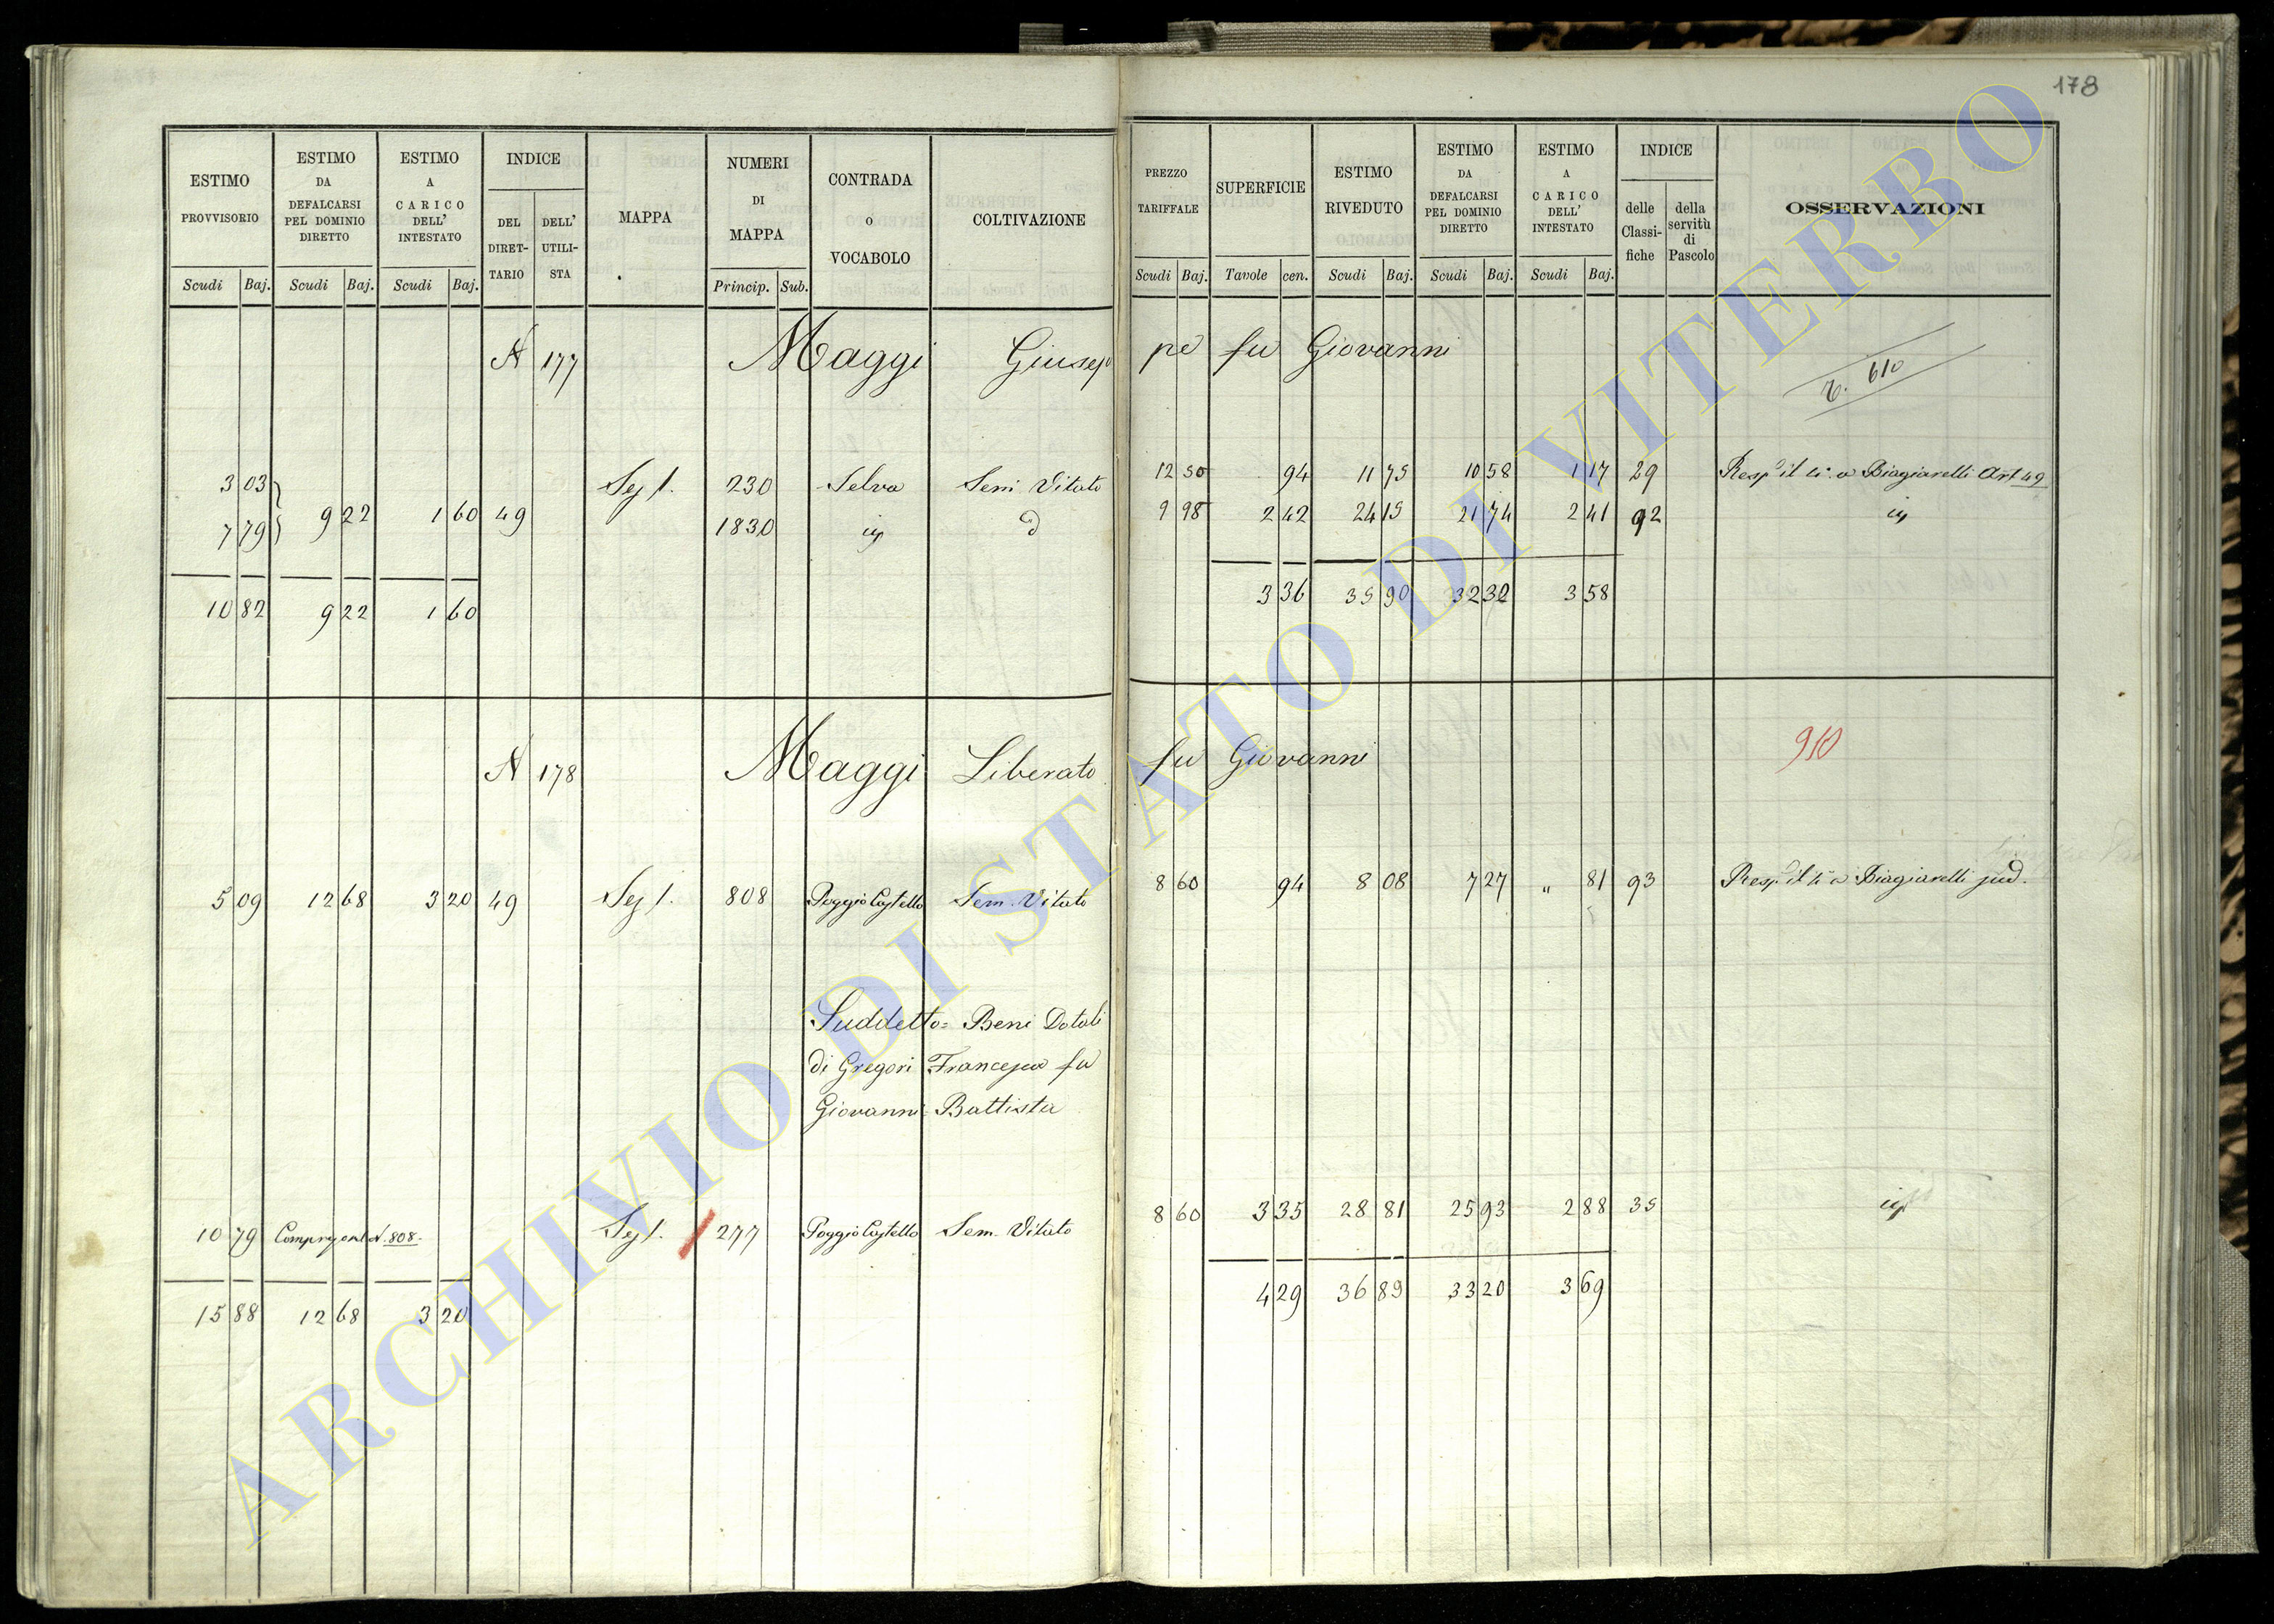 178
ESTIMO PROVVISORIO
ESTIMO DA DEFALCARSI PEL DOMINIO DIRETTO
ESTIMO A CARICO DELL' INTESTATO
INDICE
DEL DIRET-TARIO
DELL' UTILI-STA
MAPPA
NUMERI DI MAPPA
CONTRADA O VOCABOLO
COLTIVAZIONE
PREZZO TARIFFALE
SUPERFICIE
ESTIMO RIVEDUTO
ESTIMO DA DEFALCARSI PEL DOMINIO DIRETTO
ESTIMO A CARICO DELL' INTESTATO
INDICE
delle Classi-fiche
della servitù di Pascolo
OSSERVAZIONI
Scudi Baj. Scudi Baj. Scudi Baj. Princip. Sub. Scudi Baj. Tavole cen. Scudi Baj. Scudi Baj. Scudi Baj.
N 177 Maggi Giuseppe fu Giovanni
610
3 03 Sez 1. 230 Selva Sem Vitato 12 50 94 11 75 10 58 1 17 29 Resp il ti. a Biagiarelli Art 49
9 22 1 60 49
7 79 1830 d 9 98 2 42 24 15 21 74 2 41 92
3 36 35 90 32 32 3 58
10 82 9 22 1 60
N 178 Maggi Liberato fu Giovanni
910
5 09 12 68 3 20 49 Sez 1. 808 Poggio Castello Sem. Vitato 8 60 94 8 08 7 27 " 81 93 Resp. il ti a Biagiarelli sud.
Suddetto = Beni Dotali
di Gregori Francesca fu
Giovanni = Battista
10 79 N. 808. Sez 1. 277 Poggio Castello Sem. Vitato 8 60 3 35 28 81 25 93 2 88 35
4 29 36 89 33 20 3 69
15 88 12 68 3 20
ARCHIVIO DI STATO DI VITERBO